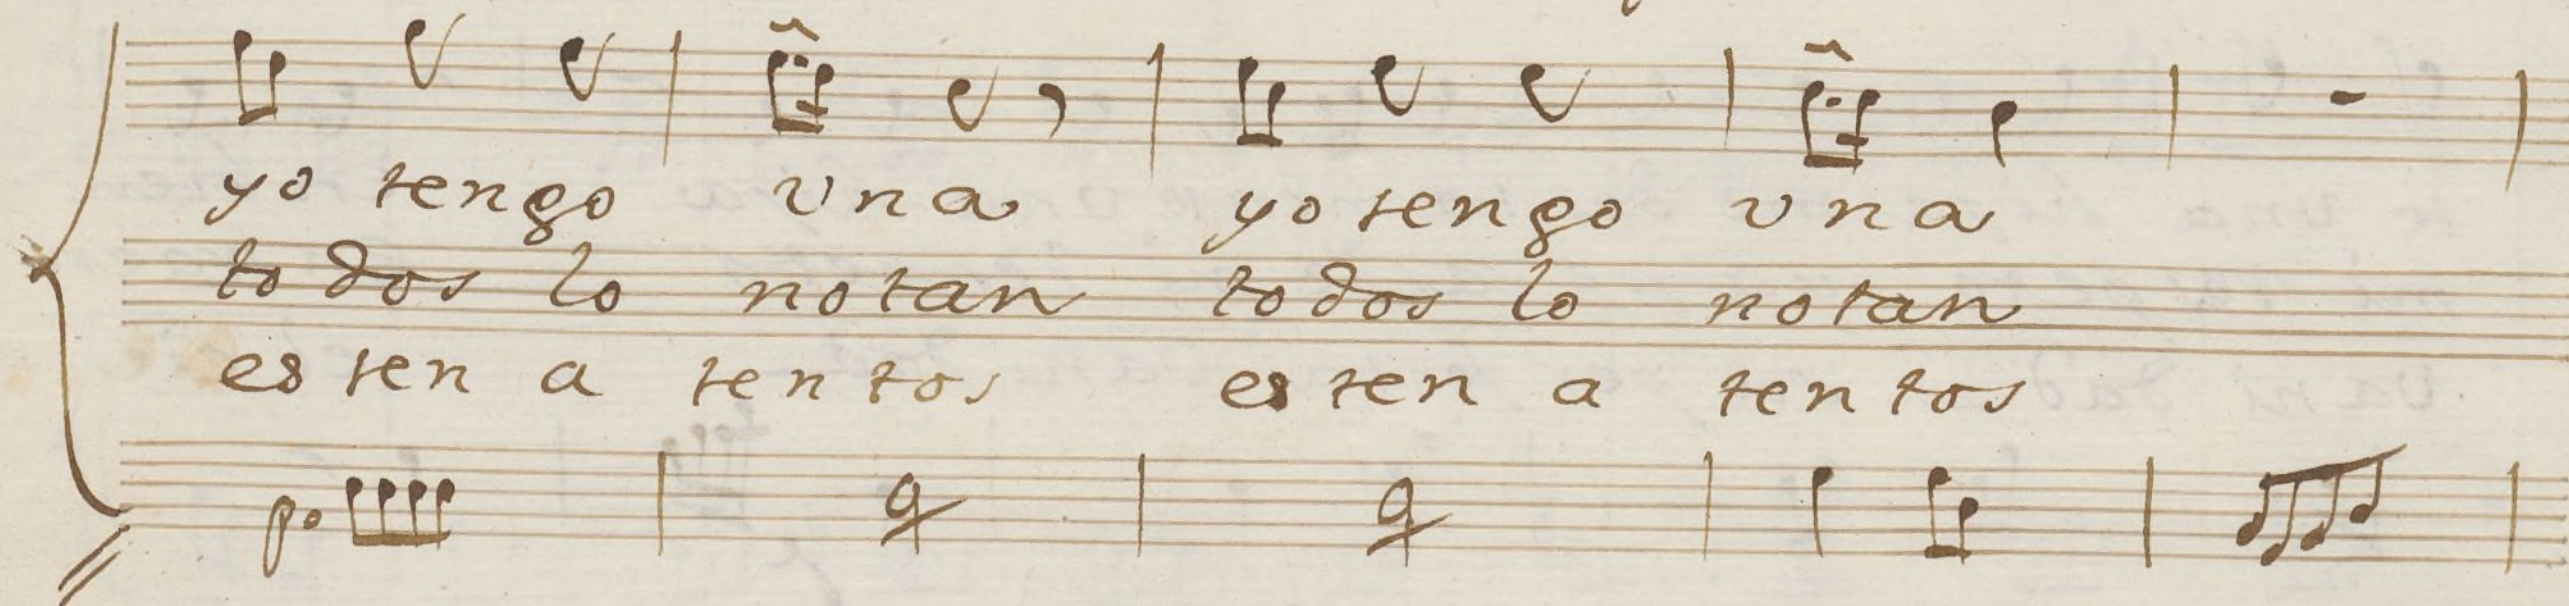 yo tengo vna yo tengo vna
to dos lo no tan to dos lo no tan
es ten a ten tos es ten a ten tos
po